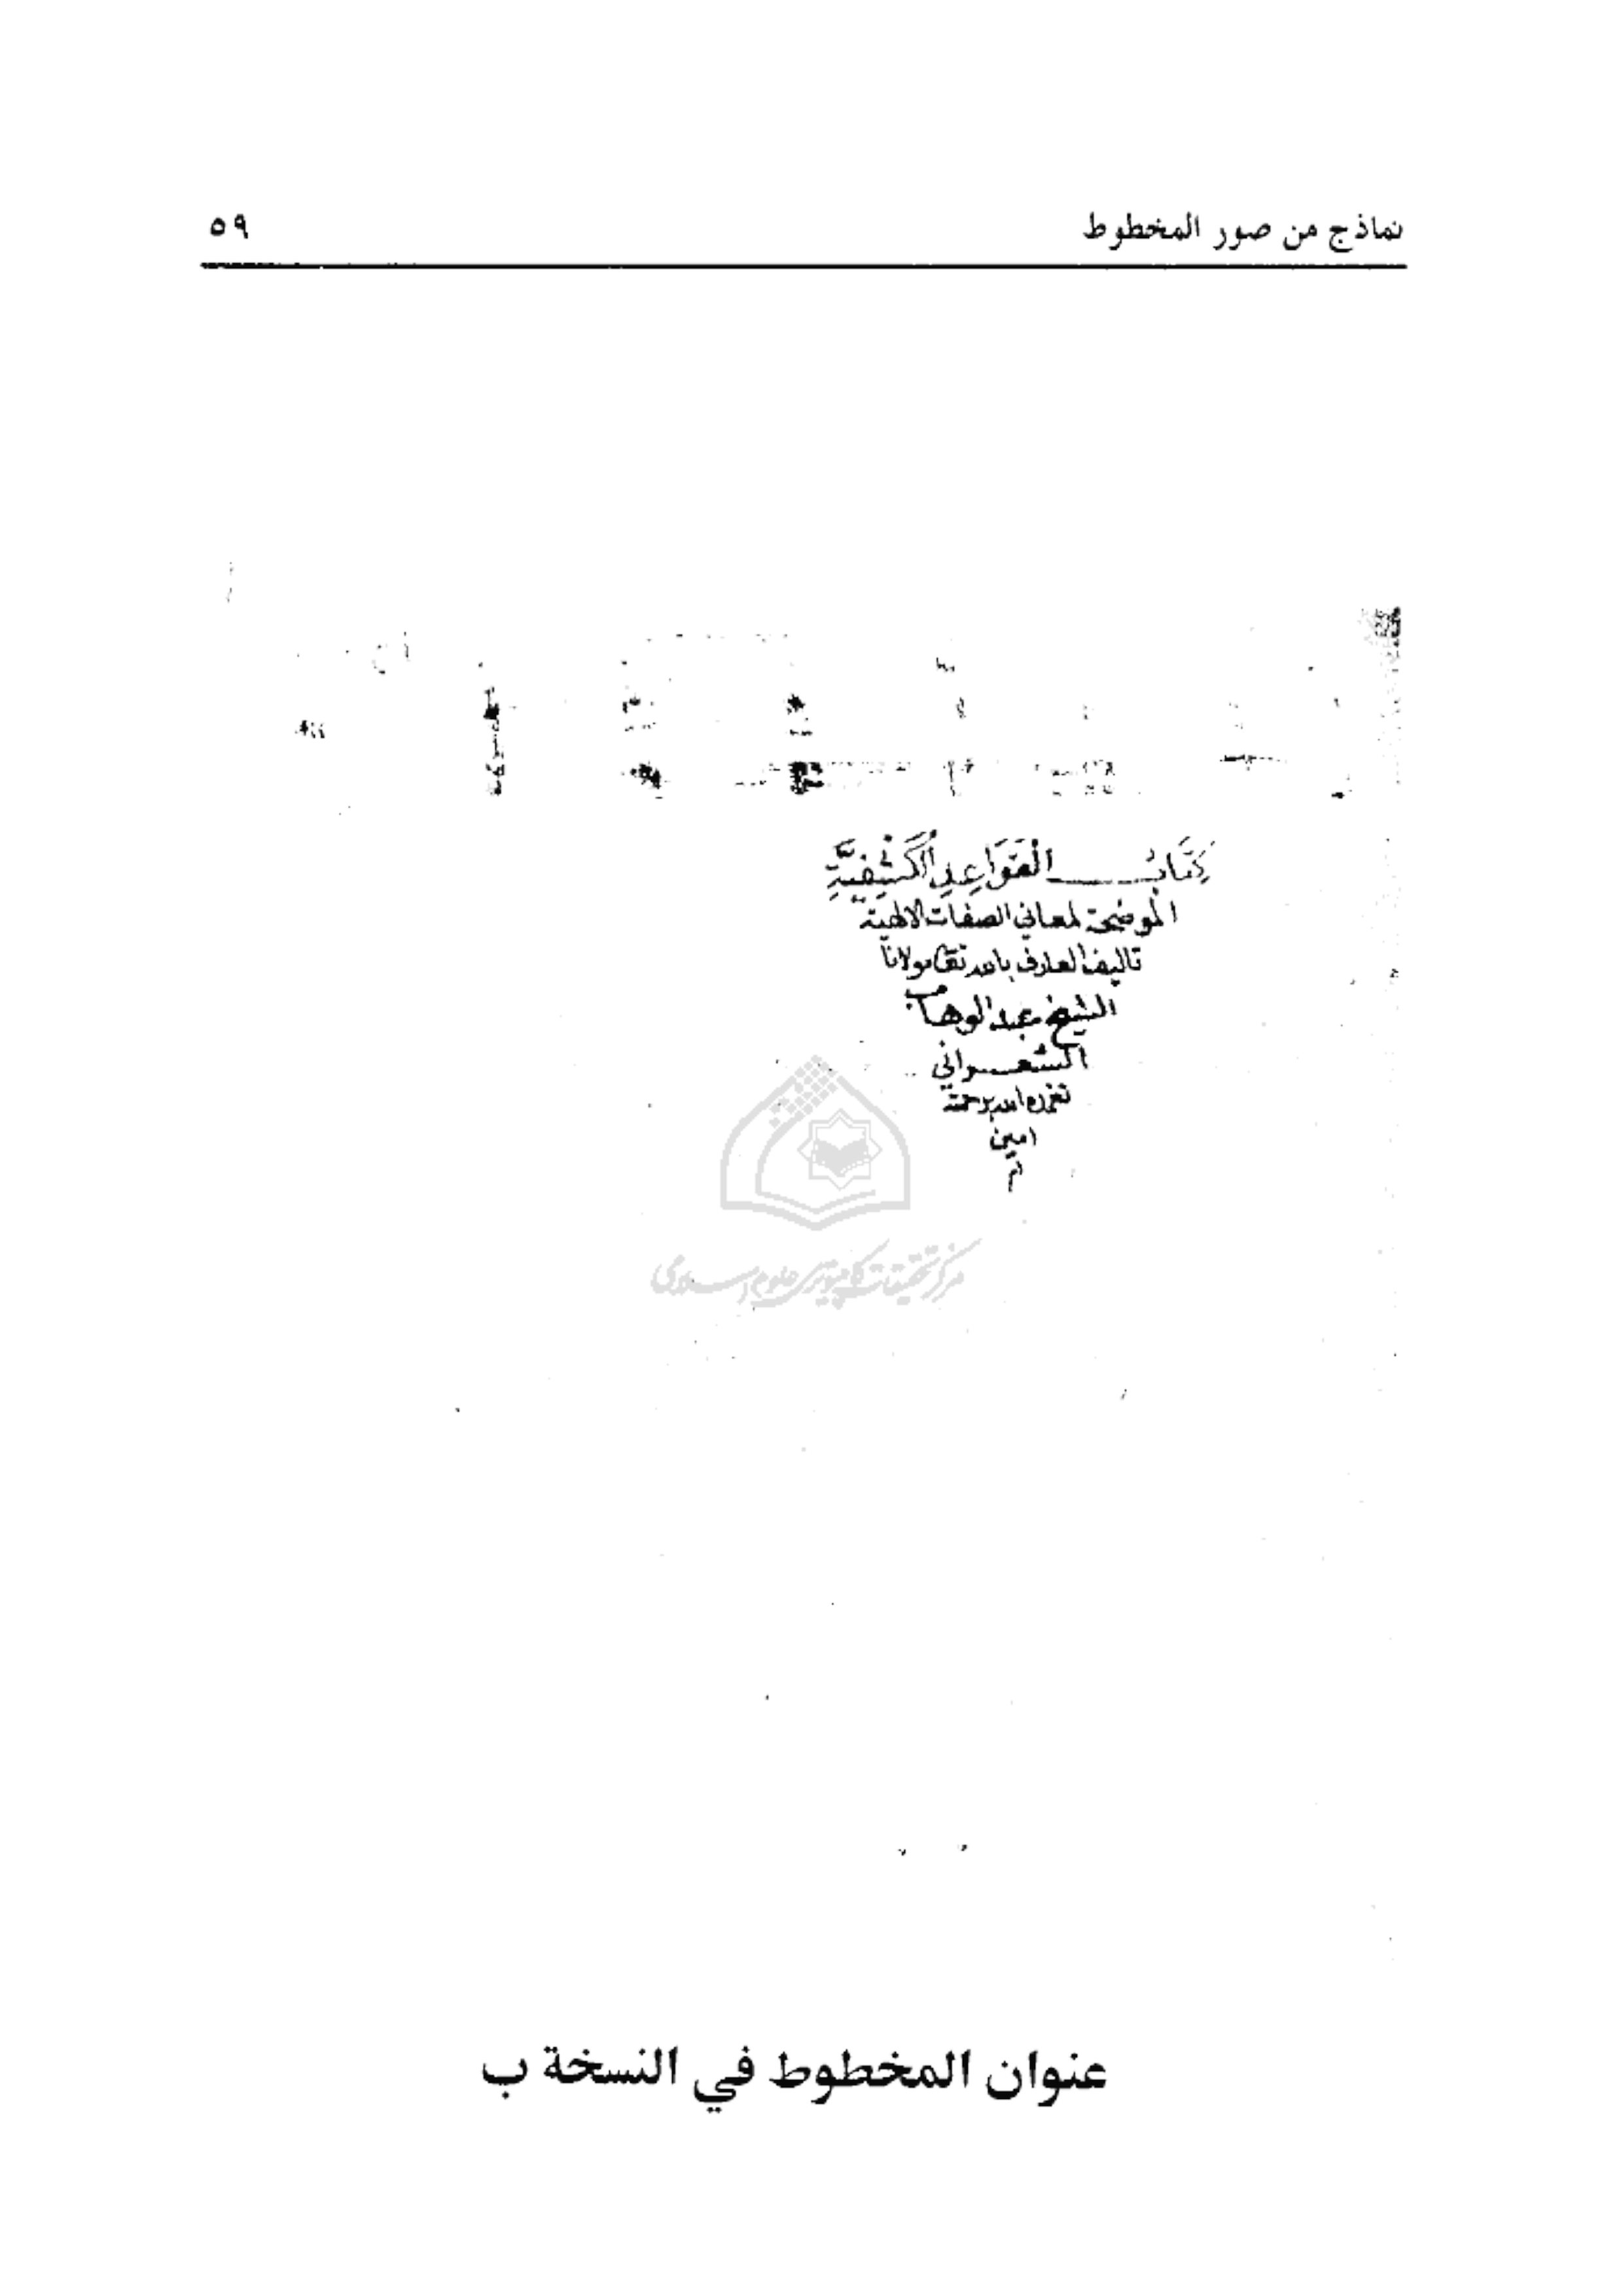 نماذج من صور المخطوط ٥٩
كِتَابُ القَوَاعِدِ الْكَشْفِيَّةِ
الموضحة لمعاني الصفات الالهية
تاليف العارف بالله تعالى مولانا
الشيخ عبد الوهاب
الشعراني
تغمده الله برحمته
امين
م
مركز تحقیقات کامپیوتری علوم اسلامی
عنوان المخطوط في النسخة ب